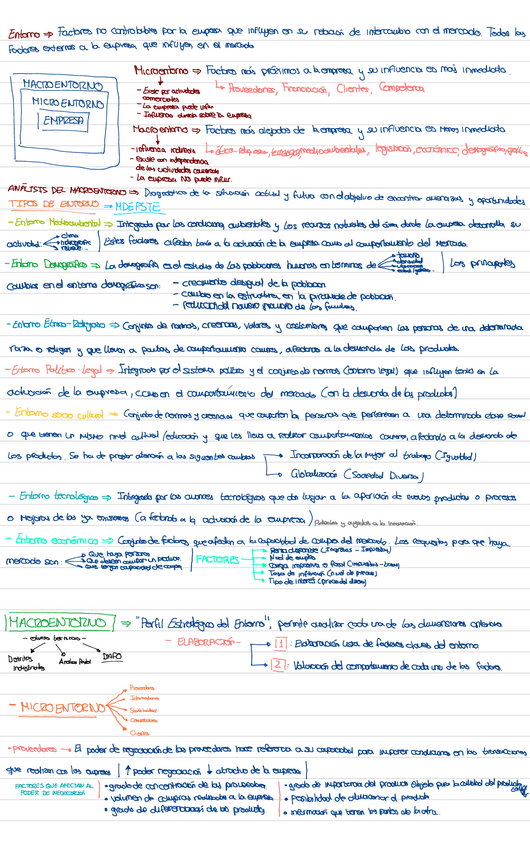 Entorno ⇒ Factores no controlables por la empresa que influyen en su relación de intercambio con el mercado. Todos los
factores externos a la empresa que influyen en el mercado
Microentorno ⇒ Factores más próximos a la empresa y su influencia es más inmediata.
Proveedores, Financiación, Clientes, Competencia
- Existe por actividades
comerciales
- La empresa puede influir
- Influencia directa sobre la empresa
MACROENTORNO
MICROENTORNO
EMPRESA
Macroentorno ⇒ Factores más alejados de la empresa y su influencia es menos inmediata
- influencia indirecta
- Existe con independencia
de las actividades comerciales
- La empresa NO puede influir.
ANÁLISIS DEL MACROENTORNO ⇒ Diagnóstico de la situación actual y futura con el objetivo de encontrar amenazas y oportunidades
TIPOS DE ENTORNO → MDEPSTE
- Entorno Medioambiental ⇒ Integrado por las condiciones ambientales y los recursos naturales del área donde la empresa desarrolla su
actividad: clima
Estos factores afectan tanto a la actuación de la empresa como al comportamiento del mercado.
- Entorno Demográfico ⇒ La demografía es el estudio de las poblaciones humanas en términos de
tamaño
densidad
Los principales
cambios en el entorno demográfico son: - crecimiento desigual de la población
- cambio en la estructura, en la pirámide de población.
- reducción del número de las familias.
- Entorno Étnico-Religioso ⇒ Conjunto de normas, creencias, valores y costumbres que comparten las personas de una determinada
raza o religión y que llevan a pautas de comportamiento comunes, afectando a la demanda de los productos.
- Entorno Político-Legal ⇒ Integrado por el sistema político y el conjunto de normas (entorno legal) que influyen tanto en la
actuación de la empresa, como en el comportamiento del mercado (con la demanda de los productos)
- Entorno socio cultural ⇒ Conjunto de normas y creencias que comparten las personas que pertenecen a una determinada clase social
o que tienen un mismo nivel cultural/educación y que les lleva a realizar comportamientos comunes, afectando a la demanda de
los productos. Se ha de prestar atención a los siguientes cambios
Incorporación de la mujer al trabajo (Igualdad)
Globalización (Sociedad Diversa)
- Entorno tecnológico ⇒ Integrado por los avances tecnológicos que da lugar a la aparición de nuevos productos o procesos
o mejoras de los ya existentes (afectando a la actuación de la empresa)
- Entorno económico ⇒ Conjunto de factores que afectan a la capacidad de compra del mercado. Los requisitos para que haya
mercado son: Que haya personas
Que deseen comprar un producto
Que tengan capacidad de compra
FACTORES
Nivel de empleo
Tipo de interés (precio del dinero)
MACROENTORNO ⇒ "Perfil Estratégico del Entorno", permite analizar cada una de las dimensiones anteriores
Distritos
Industriales
DAFO
- ELABORACIÓN -
1: Elaboración lista de factores claves del entorno
2: Valoración del comportamiento de cada uno de los factores
- MICROENTORNO
Proveedores
Intermediarios
Competidores
Clientes
• proveedores → El poder de negociación de los proveedores hace referencia a su capacidad para imponer condiciones en las transacciones
que realizan con las empresas | ↑ poder negociación ↓ atractivo de la empresa |
FACTORES QUE AFECTAN AL
PODER DE NEGOCIACIÓN
• grado de concentración de los proveedores
• volumen de compras realizadas a la empresa
• grado de diferenciación de los productos
• grado de importancia del producto para la calidad del producto
• Posibilidad de almacenar el producto
• información que tienen las partes de la otra.